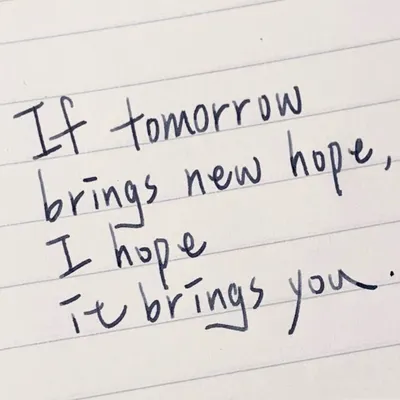 If tomorrow
brings new hope,
I hope
it brings you.